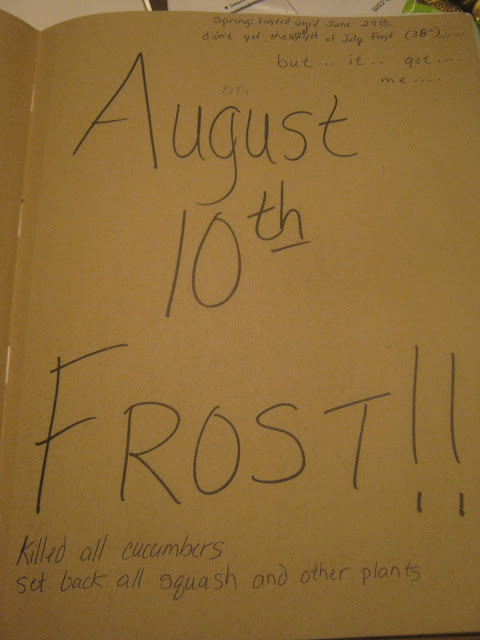 Spring: Frosted until June 29th
Didn't get the of July Frost (38°).....
but... it.. got.....
me....
on
August
10th
FROST!!
Killed all cucumbers
set back all squash and other plants